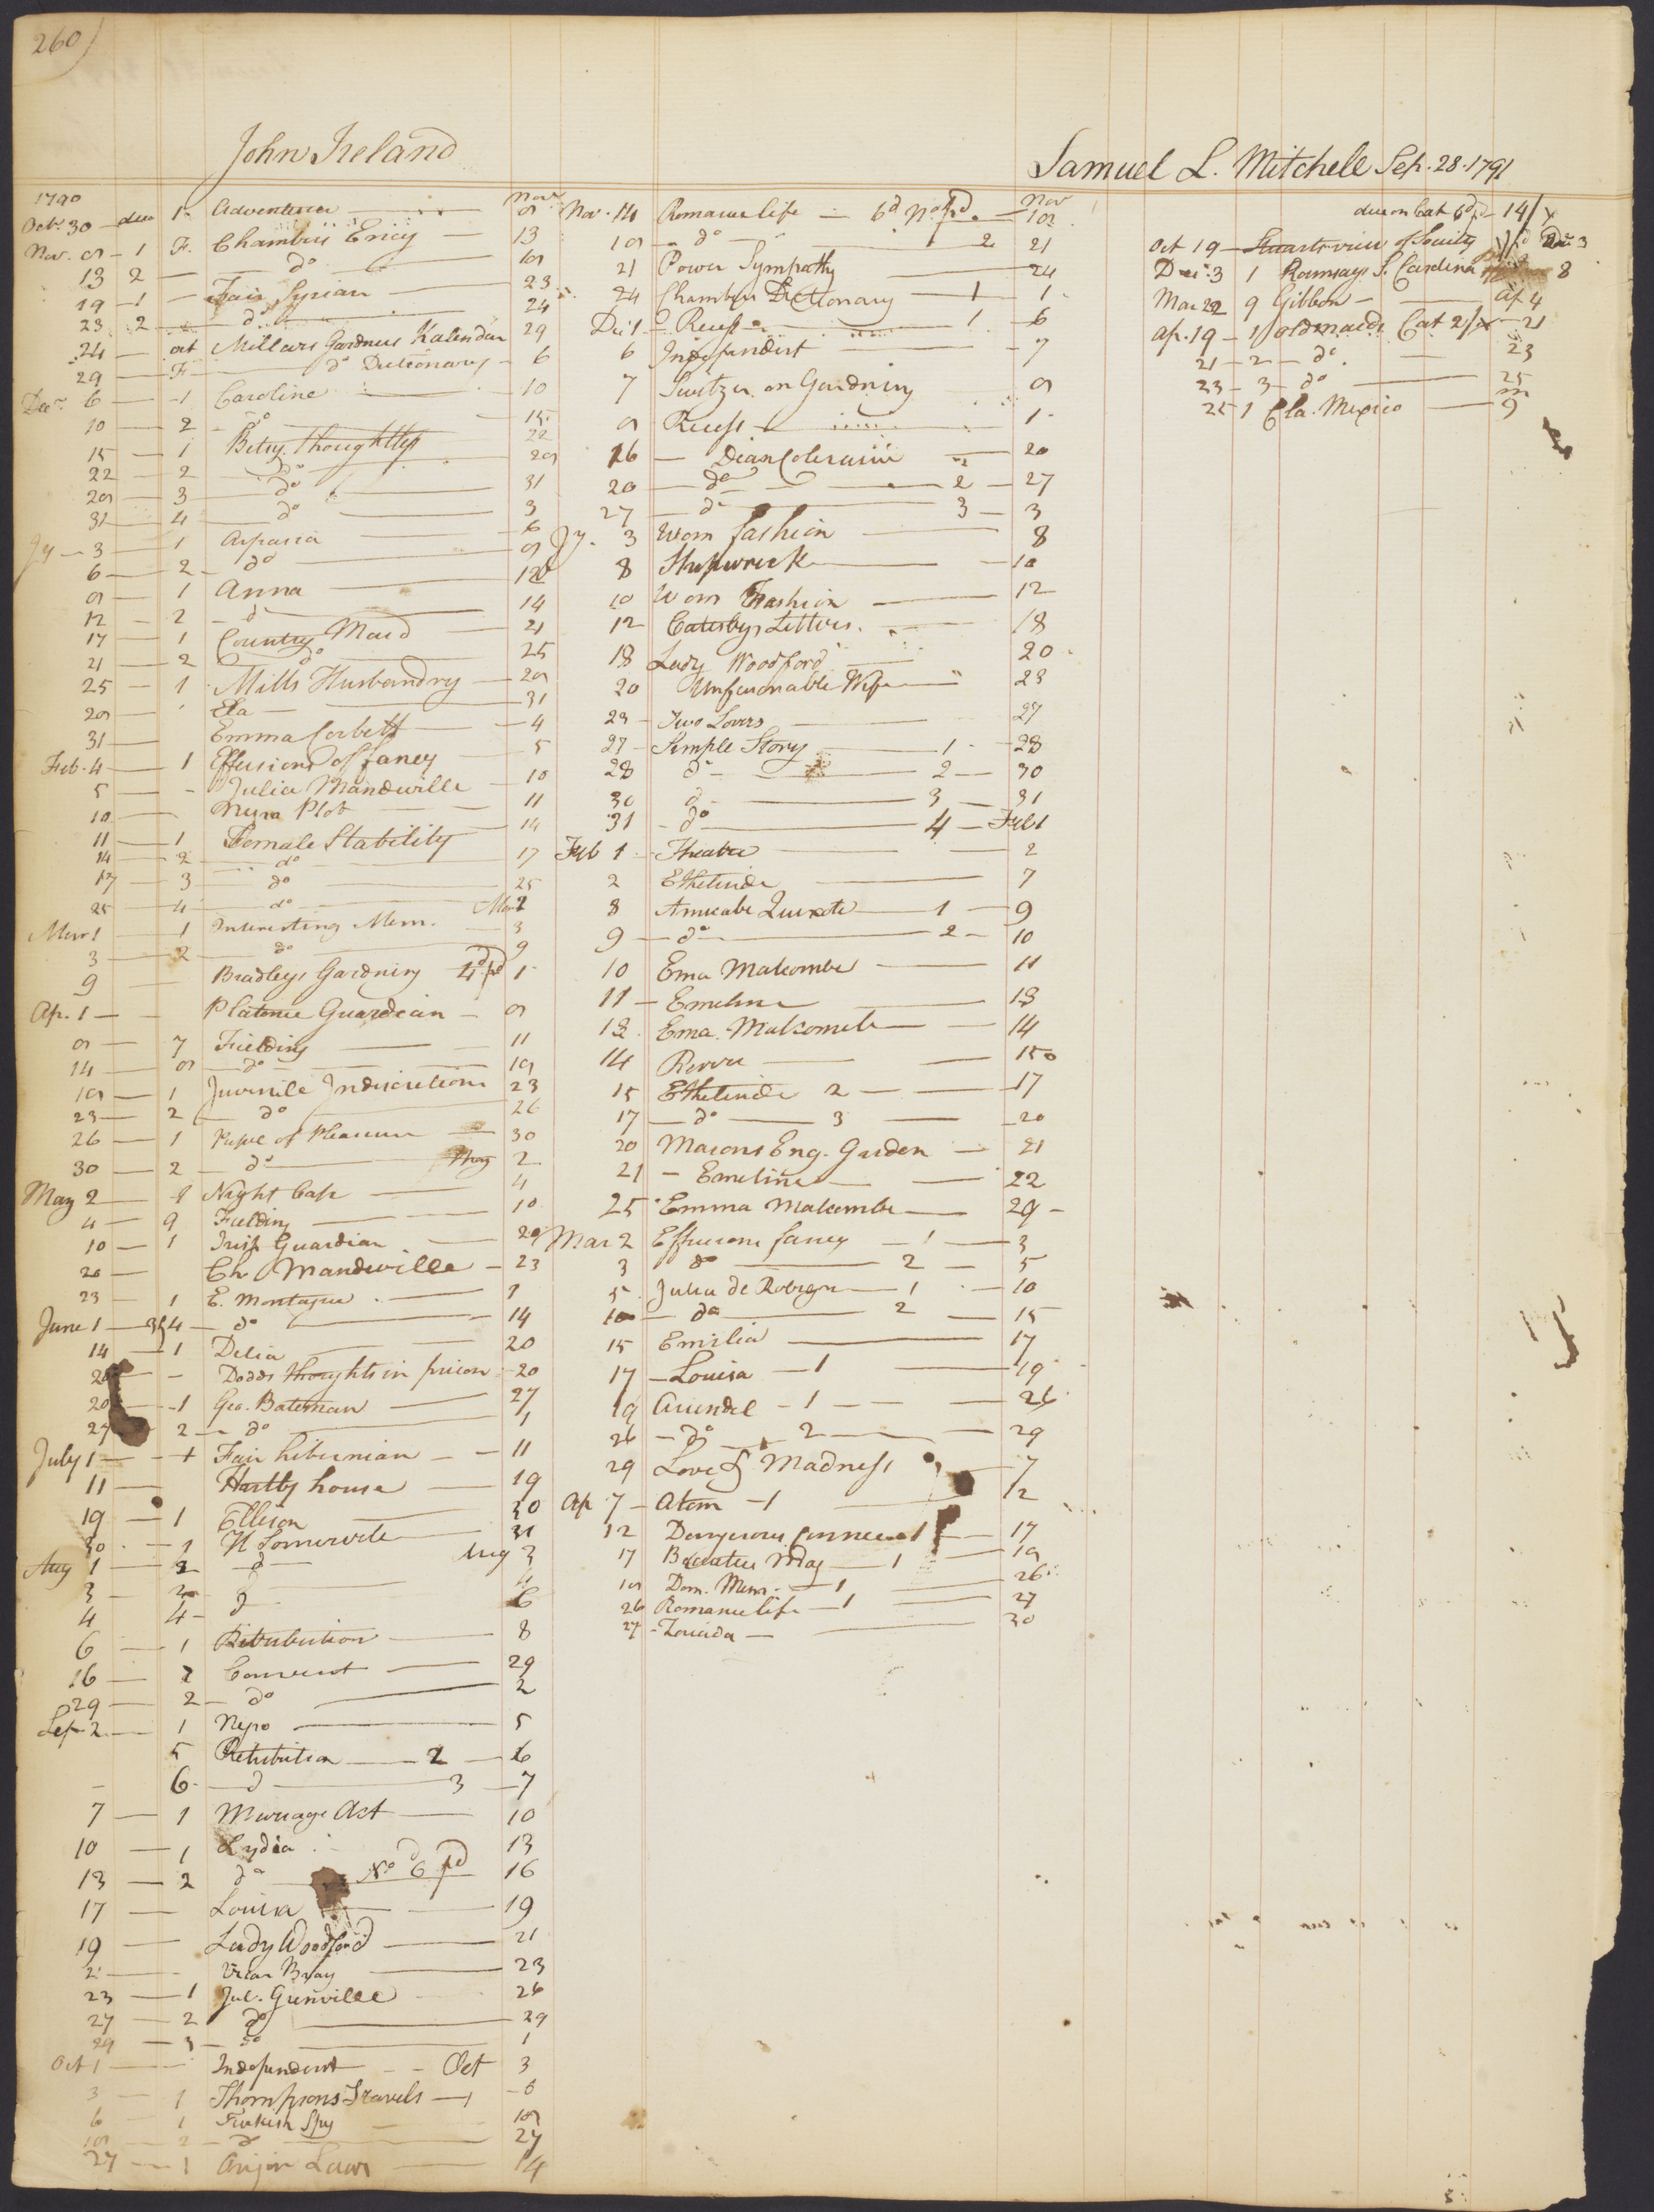 260
John Ireland
1790
Nov
Octr. 30 - 1 Adventurer
Nov. 9 - 1 F. Chambers Ency - 13
13 2 - do - 19
19 - 1 - Fair Syrian - 23
23 2 - do - 24
24 - oct Millars Gardners Kalendar 29
29 - F - do Dictionary - 6
Decr. 6 - 1 Caroline - 10
10 - 2 - do - 15
15 - 1 Betsy Thoughtless 22
22 - 2 - do - 29
29 - 3 - do - 31
31 - 4 - do - 3
Jy - 3 - 1 Aspasia - 6
6 - 2 - do - 9
9 - 1 Anna - 12
12 - 2 - do - 14
17 - 1 Country Maid - 21
21 - 2 - do - 25
25 - 1 Mills Husbandry - 29
29 - Ela - 31
31 - Emma Corbett - 4
Feb. 4 - 1 Effusions of fancy - 5
5 - Julia Mandeville - 10
10 - Myra Plot - 11
11 - 1 Female Stability - 14
14 - 2 - do - 17
17 - 3 - do - 25
25 - 4 - do - Mar 1
Mar 1 - 1 Interesting Mem. - 3
3 - 2 - do - 9
9 - Bradleys Gardning 1
Ap. 1 - Platonic Guardian - 9
9 - 7 Fielding - 11
14 - 9 - do - 19
19 - 1 Juvenile Indiscretions 23
23 - 2 - do - 26
26 - 1 Pupil of Pleasure - 30
30 - 2 - do - May 2
May 2 - 1 Night Cap - 4
4 - 9 Fielding - 10
10 - 1 Irish Guardian - 20
20 - Ch Mandeville - 23
23 - 1 E. Montague - 1
June 1 - 4 - do - 14
14 - 1 Delia - 20
20 - Dodds thoughts in prison - 20
20 - 1 Geo. Bateman - 27
27 2 - do - 1
July 1 - Fair hibernian - 11
11 - Hartly house - 19
19 - 1 Ellison - 30
30 - 1 H Somervile - 31
Aug 1 - 2 - d - Aug 3
3 - d - 4
4 4 - d - 6
6 - 1 Retribution - 8
16 - Convent - 29
29 - 2 - do - 2
Sep 2 - 1 Nepo - 5
5 Retribution - 2 - 6
6 - d - 3 - 7
7 - 1 Marriage Act - 10
10 - 1 Lydia - 13
13 - 2 do - No 6 pd 16
17 - Louisa - 19
19 - Lady Woodford - 21
2 - Vicar Bray - 23
23 - 1 Jul. Grenville 26
27 - 2 do - 29
29 - 3 - do - 1
Oct 1 - Independent - Oct 3
3 - 1 Thompsons Travels - 6
6 - 1 Turkish Spy - 19
19 - 2 - d - 27
27 - 1 Anjou Laws - 4
Nov
Nov. 14 Romance life - 6d No pd. - 19
19 - do - 2 21
21 Power Sympathy - 24
24 Chambers Dictionary - 1 1
Dec 1 - Recess - 1 - 6
6 Independent - 7
7 Switzer on Gardning 9
9 Recess - 1
16 - Dean Coleraine - 20
20 - do - 2 - 27
27 - do - 3 - 3
Jy. 3 Wom fashion - 8
8 Shipwreck - 10
10 Wom Fashion - 12
12 Catesbys Letters. - 18
18 Lady Woodford - 20
20 Unfasionable Wife - 23
23 - Two Lovers - 27
27 - Simple Story - 1 - 28
28 do - 2 - 30
30 d - 3 - 31
31 - do - 4 - Feb 1
Feb 1 - Theatre - 2
2 Ethelinde - 7
8 Amicable Quixote - 1 - 9
9 - do - 2 - 10
10 Ema Malcombe - 11
11 - Emeline - 13
13 Ema. Malcombe - 14
14 - 15
15 Ethelinde 2 - 17
17 - do - 3 - 20
20 Masons Eng. Garden - 21
21 - Emeline - 22
25 Emma Malcombe - 29
Mar 2 Effusions fancy - 1 - 3
3 do - 2 - 5
5 Julia de Robigne - 1 - 10
10 - do - 2 - 15
15 Emilia - 17
17 - Louisa - 1 - 19
19 Arundel - 1 - 26
26 - do - 2 - 29
29 Love & Madness - 7
Ap 7 - Atom - 1 - 12
12 Dangerous Connec 1 - 17
17 Mag - 1 - 19
19 Dom. Mem. - 1 - 26
26 Romance life - 1 - 27
27 - Zoraida - 30
Samuel L. Mitchell Sep. 28. 1791
due on Cat 14/
Oct 19 - Stuarts view of Society Dec 3
Decr. 3 1 Ramsays S. Carolina 8
Mar 22 9 Gibbon - Ap 4
Ap. 19 - 1 old maids Cat 2/ - 21
21 - 2 - do - 23
23 - 3 - do - 25
25 - 1 Cla. Mexico - 9